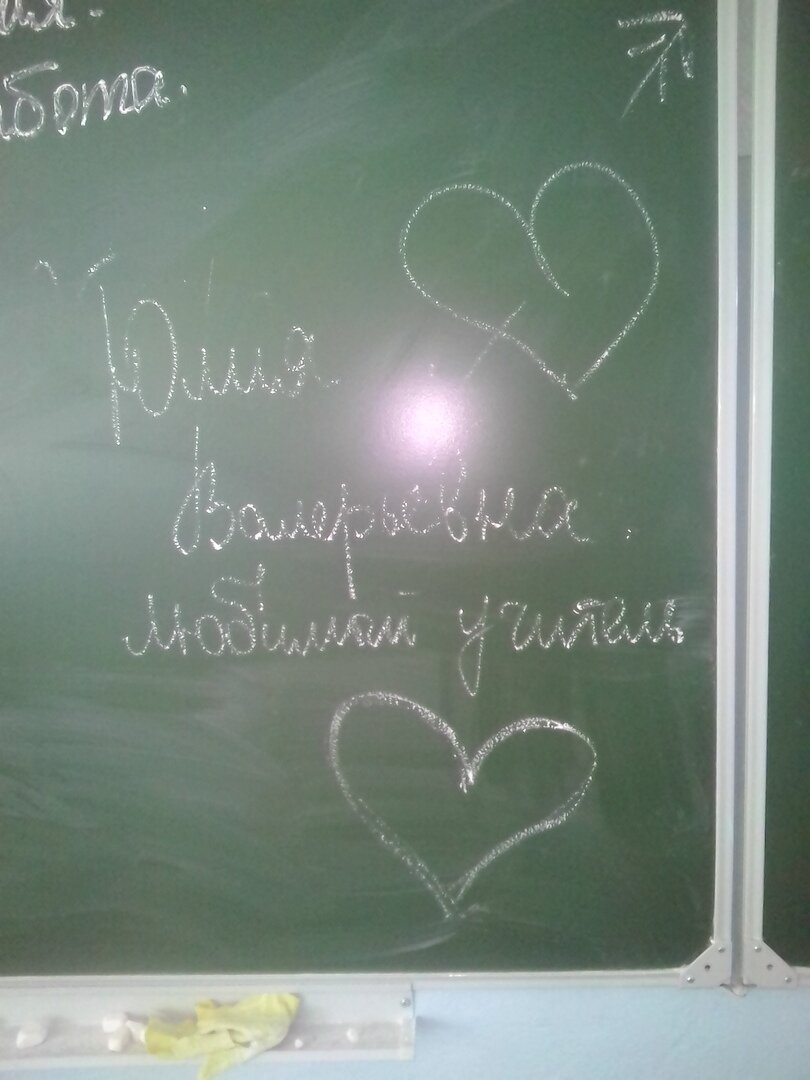 бота.
Юлия
Валерьевна.
любимый учитель